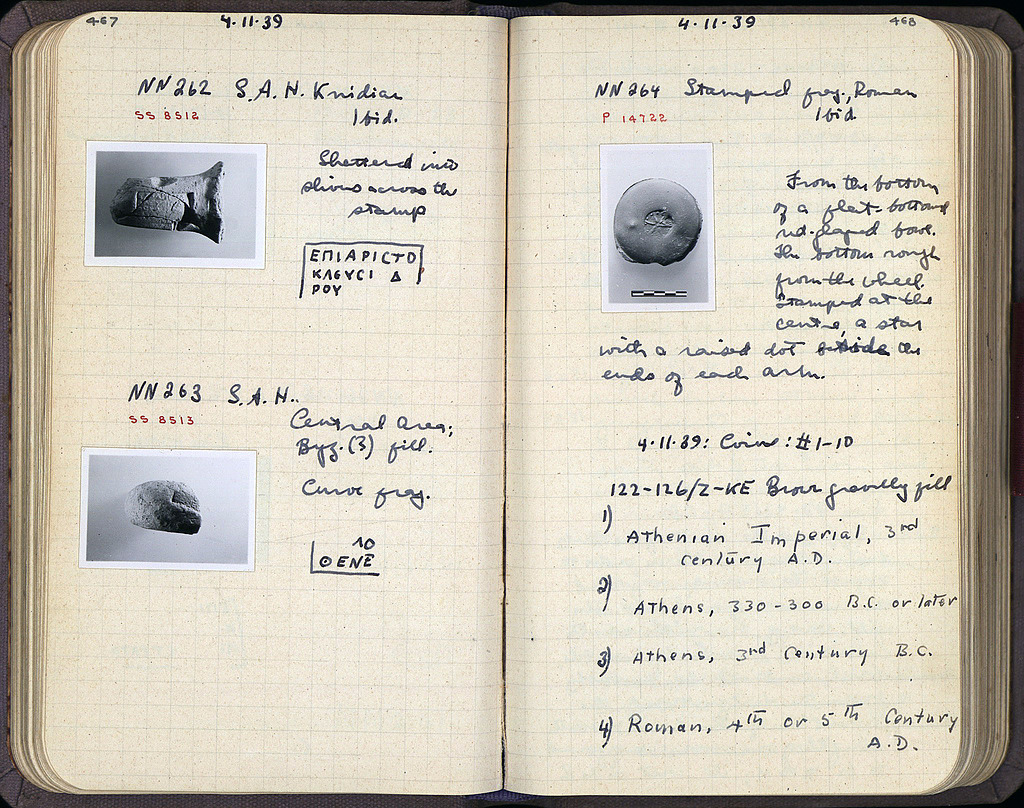 467
4·11·39
NN 262 S.A.H. Knidian
SS 8512
Ibid.
Shattered into
slivers across the
stamp
ΕΠΙΑΡΙΣΤΟ
ΚΛΕΥCΙ Δ
ΡΟΥ
NN 263 S.A.H.
SS 8513
Central Area;
Byz. (3) fill.
Curve frag.
ΙΟ
ΘΕΝΕ
4·11·39
468
NN 264 Stamped frag., Roman
P 14722
Ibid
From the bottom
of a flat-bottomed
red-glazed bowl.
The bottom rough
from the wheel.
Stamped at the
centre, a star
with a raised dot beside the
ends of each arm.
4·11·39: Coins: #1-10
122-126/Z-KE Brown gravelly fill
1)
Athenian Imperial, 3rd
century A.D.
2)
Athens, 330-300 B.C. or later
3) Athens, 3rd century B.C.
4) Roman, 4th or 5th Century
A.D.